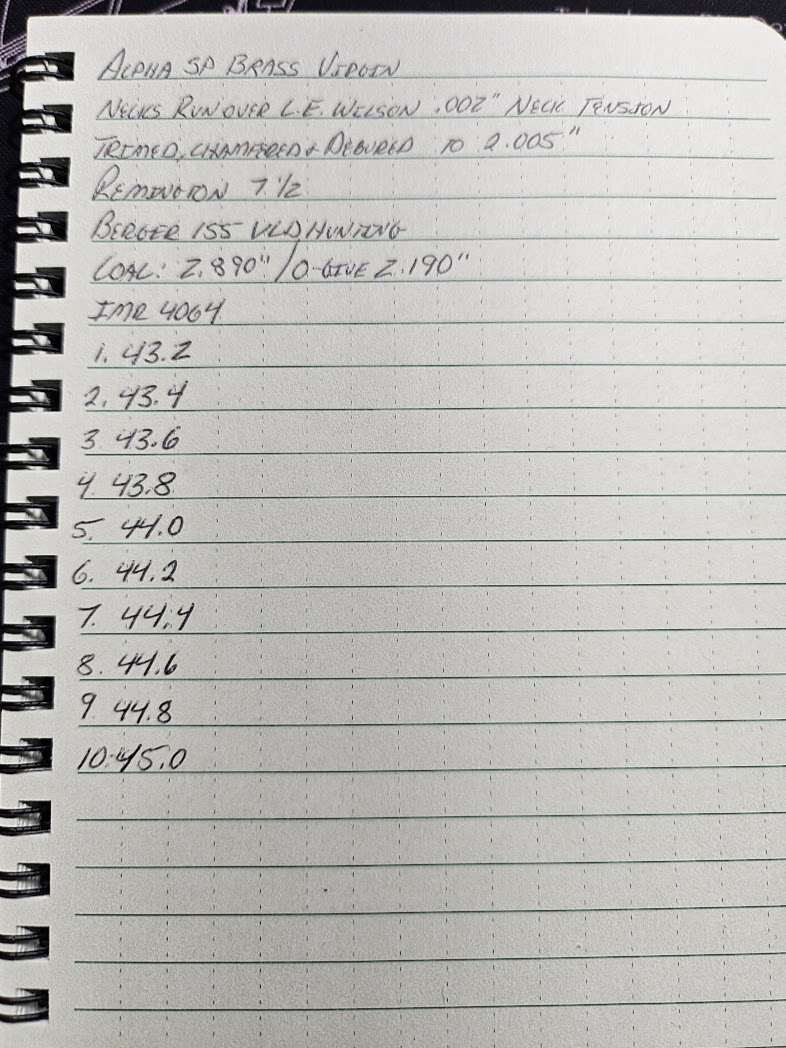 ALPHA SP BRASS VIRGIN
NECKS RUN OVER L.E. WILSON .002" NECK TENSION
TRIMED, CHAMFERED & DEBURED TO 2.005"
REMINGTON 7 1/2
BERGER 155 VLD HUNTING
COAL: 2.890" / O-GIVE 2.190"
IMR 4064
1. 43.2
2. 43.4
3 43.6
4. 43.8
5. 44.0
6. 44.2
7. 44.4
8. 44.6
9 44.8
10. 45.0